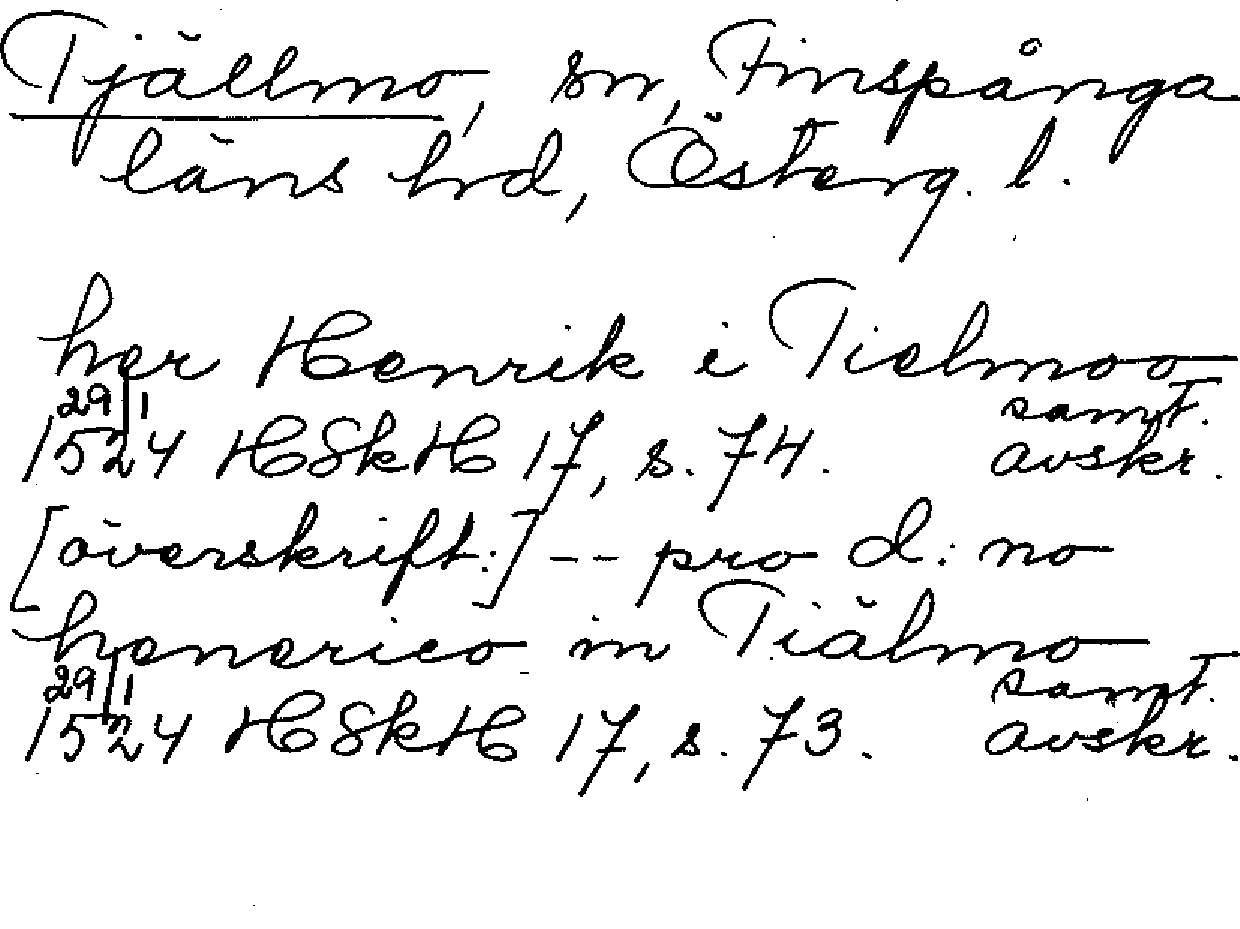 Tjällmo, sn, Finspånga
läns hd, Österg. l.
her Henrik i Tielmoo
29/1 samt.
1524 HSkH 17, s. 74. avskr.
[överskrift:] -- pro d: no
henerico in Tiälmo
29/1 samt.
1524 HSkH 17, s. 73. avskr.